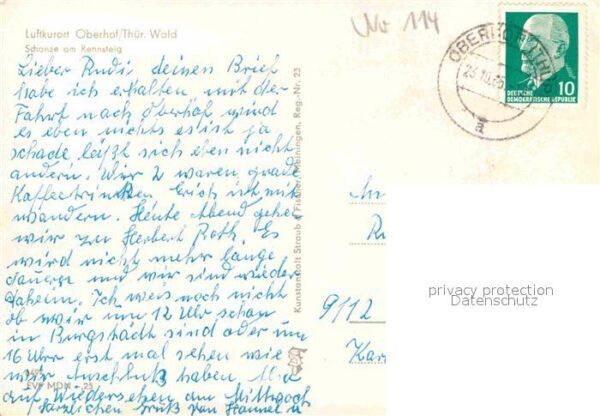 Luftkurort Oberhof/Thür. Wald
Schanze am Rennsteig
Lieber Rudi, deinen Brief
habe ich erhalten mit der
Fahrt nach Oberhof wird
es eben nichts es ist ja
schade läßt sich eben nicht
ändern. Wir 2 waren grade
Kaffeetrinken Erich ist mit
wandern. Heute Abend gehen
wir zu Herbert Roth. Es
wird nicht mehr lange
dauern und wir sind wieder
daheim. Ich weis noch nicht
ob wir um 12 Uhr schon
in Burgstädt sind oder um
16 Uhr erst mal sehen wie
wir Anschluß haben.
auf Wiedersehen am Mittwoch
Herzlichen Gruß von
EVP MDN -.25
Kunstanstalt Straub & Fischer, Meiningen, Reg.-Nr. 23
No 114
OBERHOF (THÜR)
a
DEUTSCHE
DEMOKRATISCHE REPUBLIK
10
9112
Kar
privacy protection
Datenschutz